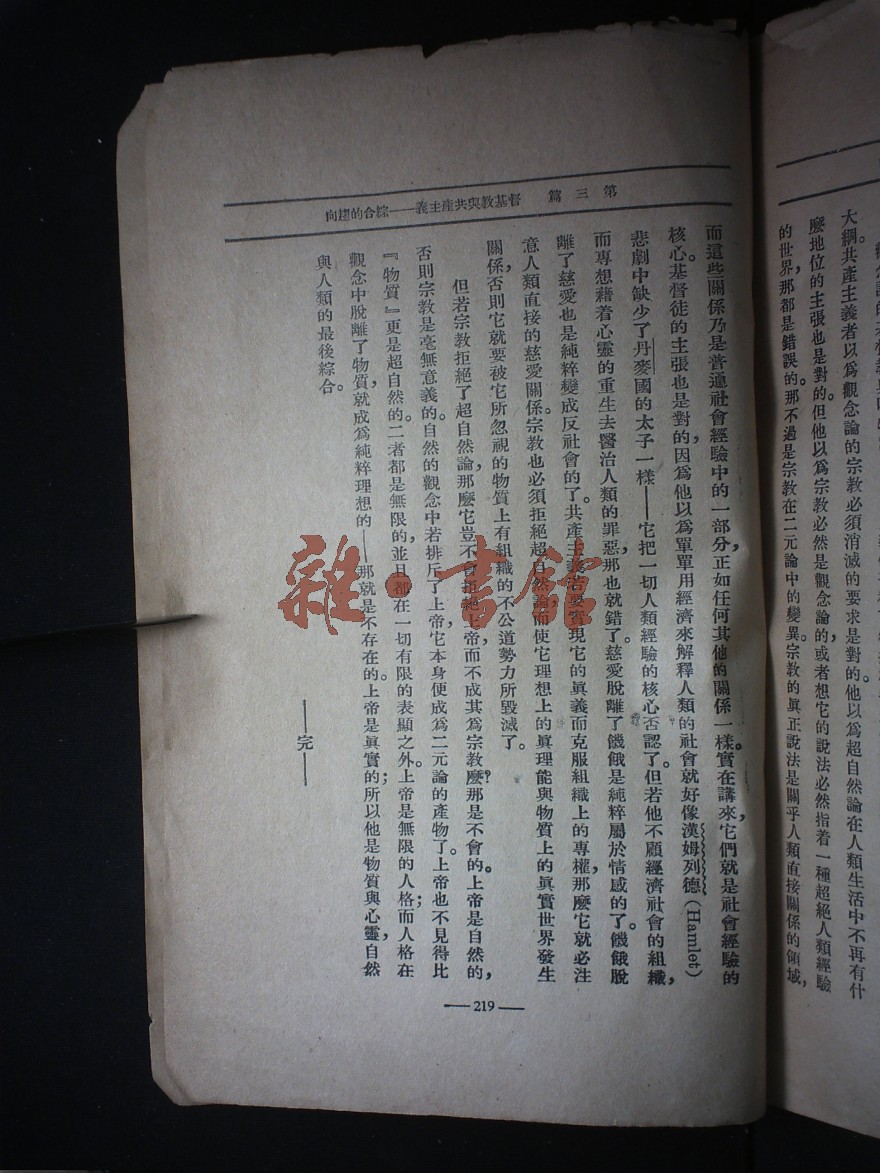 大綱。共產主義者以為觀念論的宗教必須消滅的要求是對的。他以為超自然論在人類生活中不再有什
麼地位的主張也是對的。但他以為宗教必然是觀念論的，或者想它的說法必然指着一種超絕人類經驗
的世界，那都是錯誤的。那不過是宗教在二元論中的變異。宗教的眞正說法是關乎人類直接關係的領域，
第三篇　基督教與共產主義——綜合的趨向
而這些關係乃是普通社會經驗中的一部分，正如任何其他的關係一樣。實在講來，它們就是社會經驗的
核心。基督徒的主張也是對的，因為他以為單單用經濟來解釋人類的社會就好像漢姆列德（Hamlet）
悲劇中缺少了丹麥國的太子一樣——它把一切人類經驗的核心否認了。但若他不顧經濟社會的組織，
而專想藉着心靈的重生去醫治人類的罪惡，那也就錯了。慈愛脫離了饑餓是純粹屬於情感的了。饑餓脫
離了慈愛也是純粹變成反社會的了。共產主義若要實現它的眞義而克服組織上的專權，那麼它就必注
意人類直接的慈愛關係。宗教也必須拒絕超自然論而使它理想上的眞理能與物質上的眞實世界發生
關係，否則它就要被它所忽視的物質上有組織的不公道勢力所毀滅了。
但若宗教拒絕了超自然論，那麼它豈不會拒絕上帝，而不成其為宗教麼？那是不會的。上帝是自然的，
否則宗教是毫無意義的。自然的觀念中若排斥了上帝，它本身便成為二元論的產物了。上帝也不見得比
『物質』更是超自然的。二者都是無限的，並且都在一切有限的表顯之外。上帝是無限的人格；而人格在
觀念中脫離了物質，就成為純粹理想的——那就是不存在的。上帝是眞實的；所以他是物質與心靈，自然
與人類的最後綜合。
——完——
—219—
雜·書館